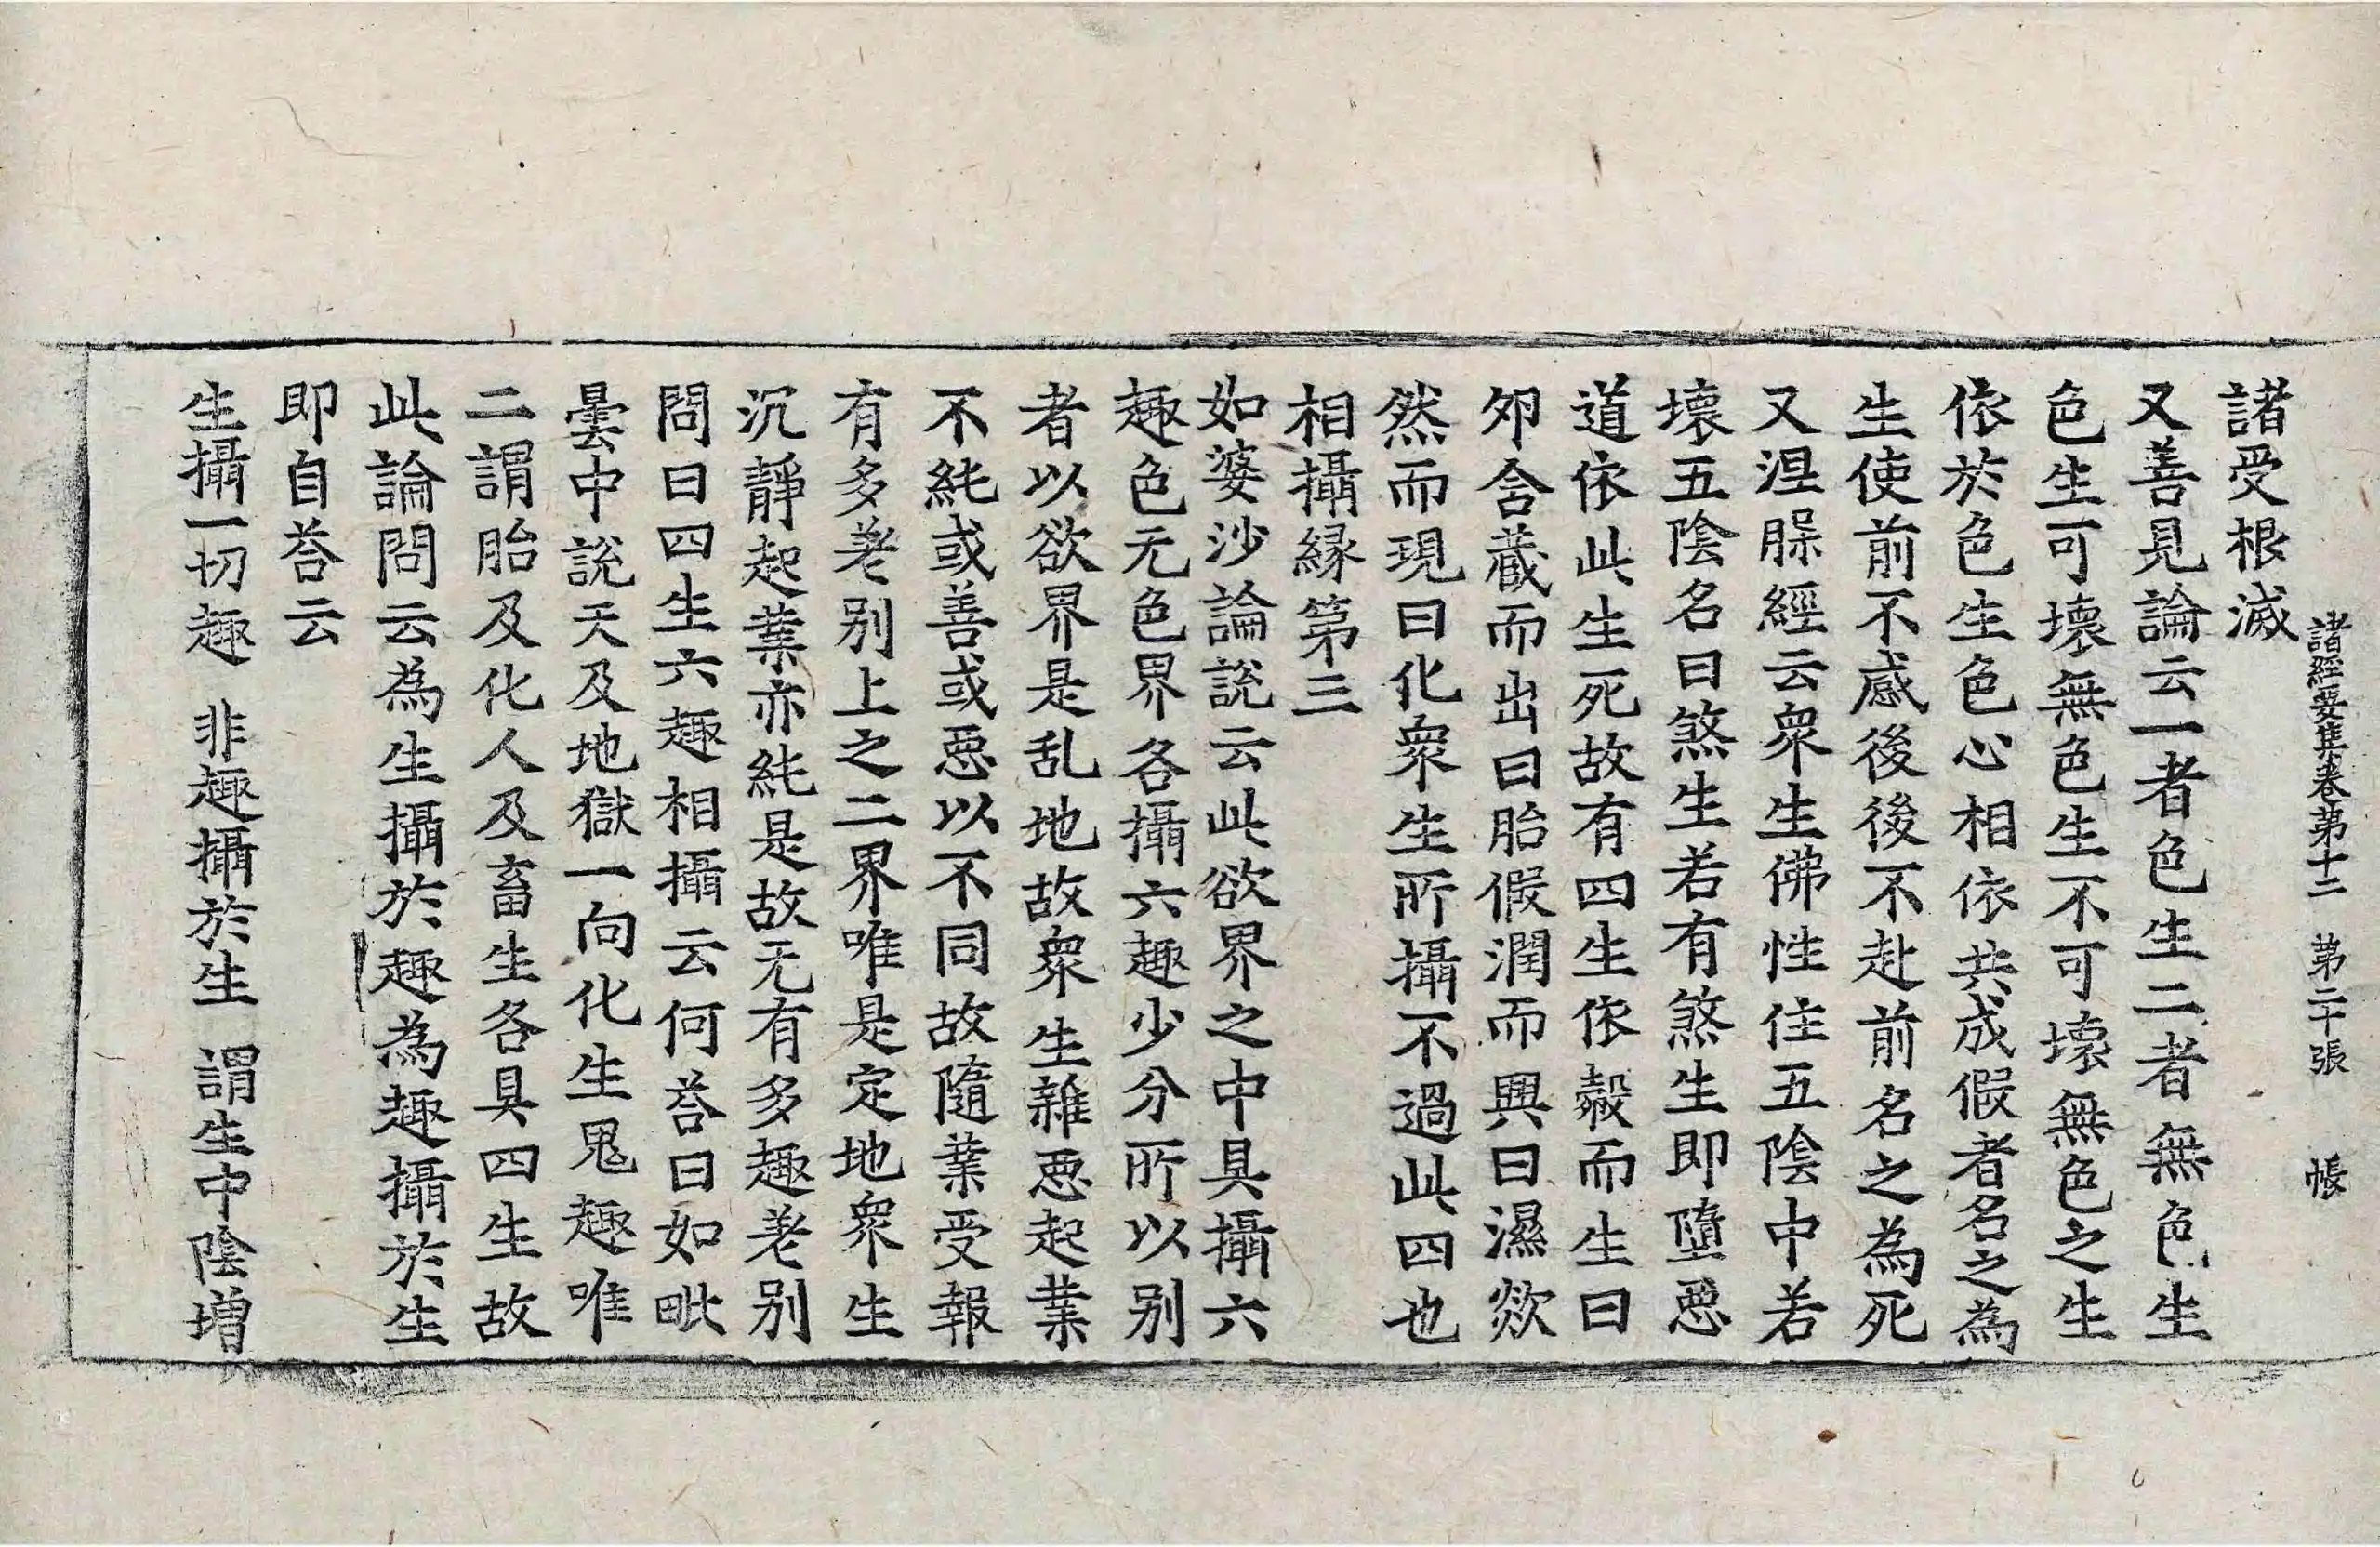 諸經要集卷第十二　第二十張　帳
諸受根滅
又善見論云一者色生二者無色生
色生可壞無色生不可壞無色之生
依於色生色心相依共成假者名之為
生使前不感後後不赴前名之為死
又涅槃經云衆生佛性住五陰中若
壞五陰名曰煞生若有煞生即墮惡
道依此生死故有四生依㲉而生曰
夘含藏而出曰胎假潤而興曰濕欻
然而現曰化衆生所攝不過此四也
相攝緣第三
如婆沙論說云此欲界之中具攝六
趣色无色界各攝六趣少分所以別
者以欲界是乱地故衆生雜惡起業
不純或善或惡以不同故隨業受報
有多差别上之二界唯是定地衆生
沉靜起業亦純是故无有多趣差別
問曰四生六趣相攝云何荅曰如毗
曇中說天及地獄一向化生鬼趣唯
二謂胎及化人及畜生各具四生故
此論問云為生攝於趣為趣攝於生
即自荅云
生攝一切趣　非趣攝於生　謂生中陰增